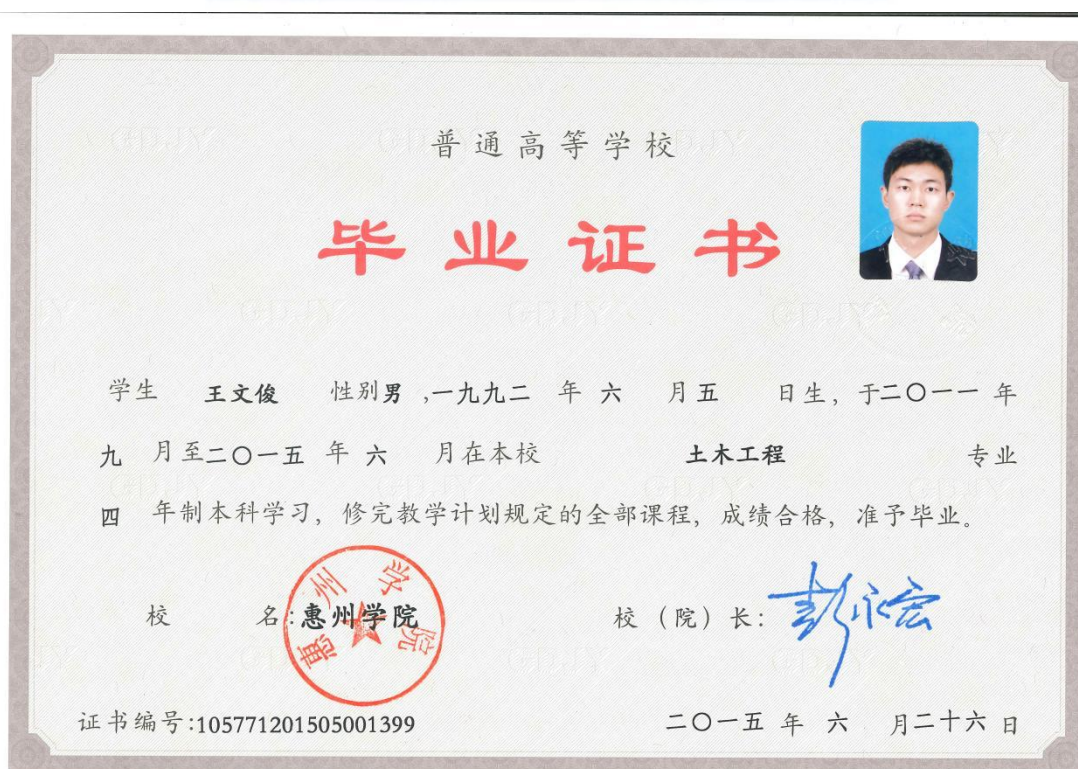 普通高等学校
毕业证书
学生 王文俊 性别男,一九九二 年 六 月五 日生，于二〇一一 年
九 月至二〇一五 年 六 月在本校 土木工程 专业
四 年制本科学习，修完教学计划规定的全部课程，成绩合格，准予毕业。
校 名:惠州学院 校（院）长: 彭永宏
惠州学院
证书编号:105771201505001399 二〇一五 年 六 月二十六 日
GDJY